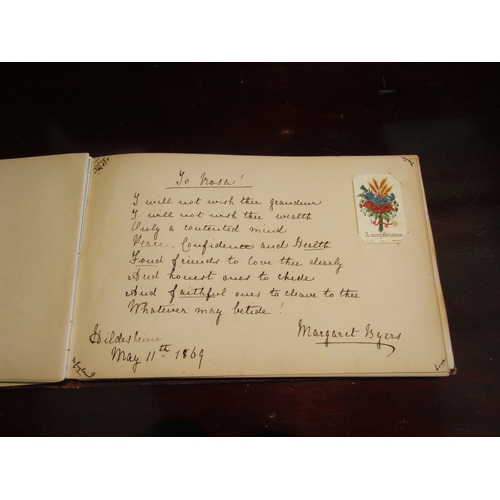 To Rosa!
I will not wish thee grandeur
I will not wish thee wealth
Only a contented mind
Peace, Confidence and Health
Fond friends to love thee dearly
And honest ones to chide
And faithful ones to cleave to thee
Whatever may betide!
Margaret Byers
Hildesheim
May 11th. 1869